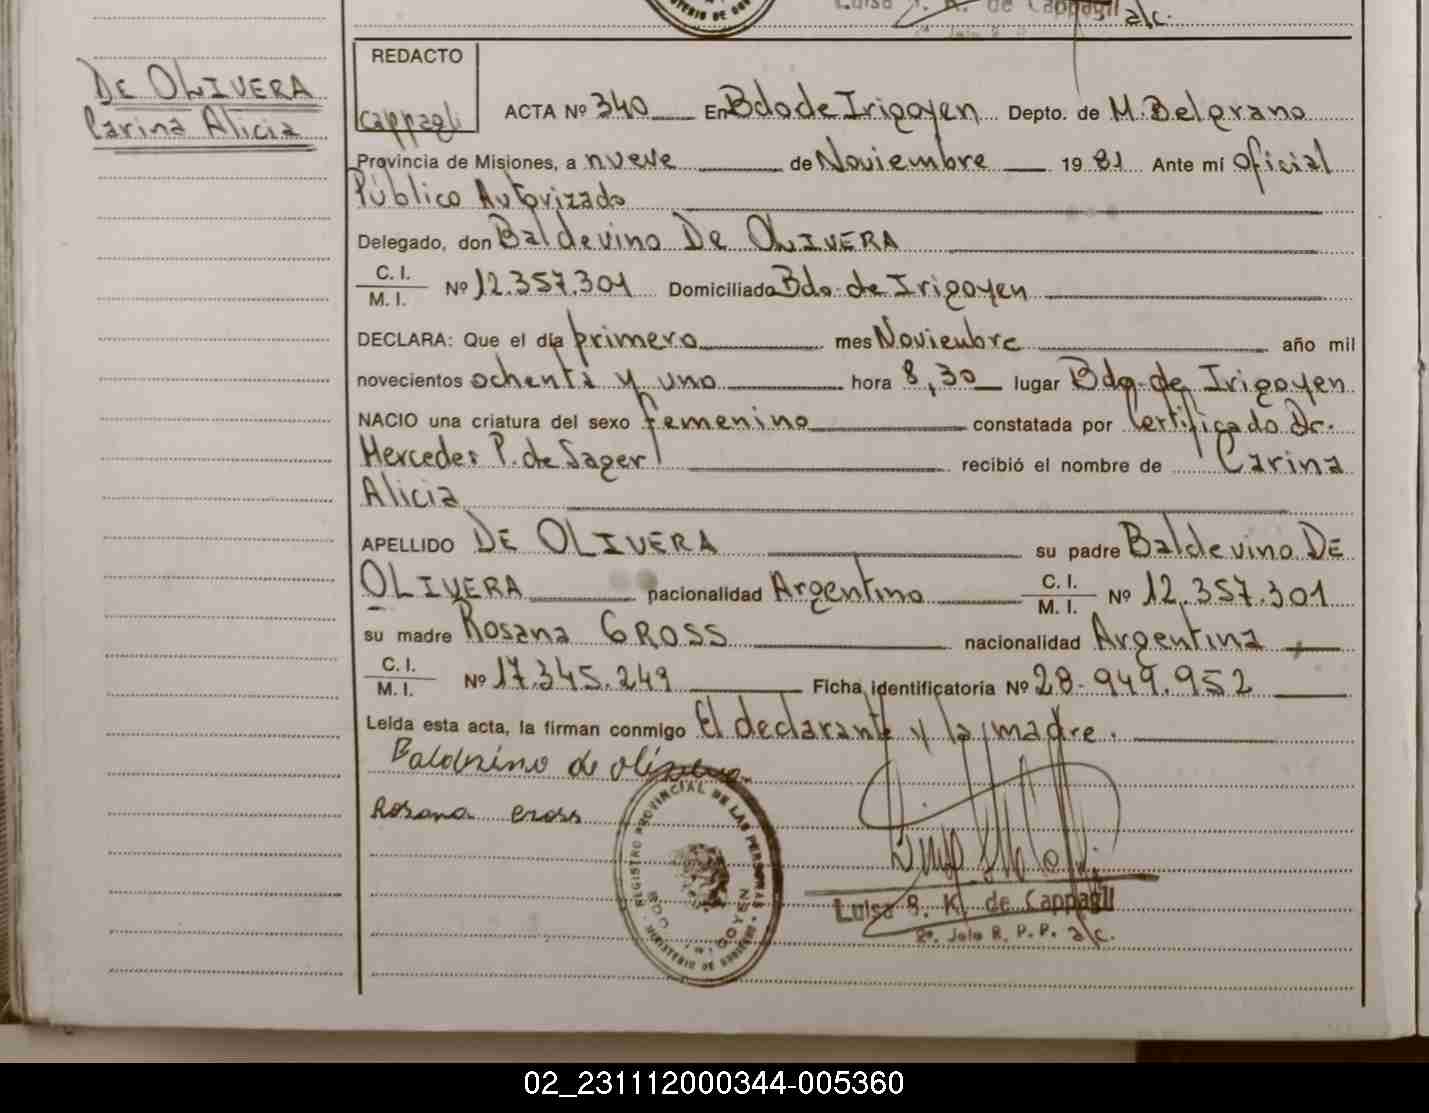 Luisa S. K. de Cappagli
a/c.
DE OLIVERA
Carina Alicia
REDACTO
Cappagli
ACTA Nº 340 En Bdo de Irigoyen Depto. de M. Belgrano
Provincia de Misiones, a nueve de Noviembre 19 81 Ante mí Oficial
Público Autorizado
Delegado, don Baldevino DE OLIVERA
C. I.
M. I. Nº 12.357.301 Domiciliado Bdo. de Irigoyen
DECLARA: Que el día primero mes Noviembre año mil
novecientos ochenta y uno hora 8,30 lugar Bdo. de Irigoyen
NACIO una criatura del sexo femenino constatada por Certificado Dr.
Mercedes P. de Sager recibió el nombre de Carina
Alicia
APELLIDO DE OLIVERA su padre Baldevino DE
OLIVERA nacionalidad Argentino C. I. M. I. Nº 12.357.301
su madre Rosana GROSS nacionalidad Argentina
C. I.
M. I. Nº 17.345.249 Ficha identificatoria Nº 28.949.952
Leída esta acta, la firman conmigo El declarante y la madre.
Baldevino de olivera
Rosana Gross
REGISTRO PROVINCIAL DE LAS PERSONAS
MINISTERIO DE GOBIERNO
Luisa S. K. de Cappagli
R. P. P. a/c.
02_231112000344-005360